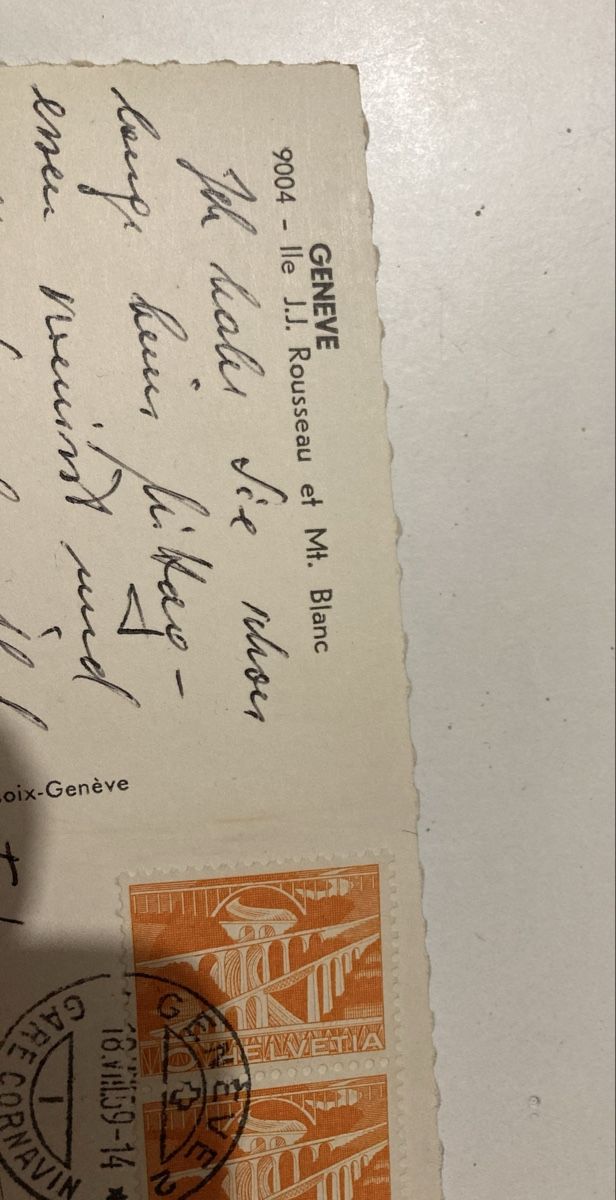 GENEVE
9004 - Ile J.J. Rousseau et Mt. Blanc
Ich habe Sie schon
lange keine Mittag-
essen nimmst und
oix-Genève
HELVETIA
GENEVE 2
18.VIII.59-14
GARE CORNAVIN
1